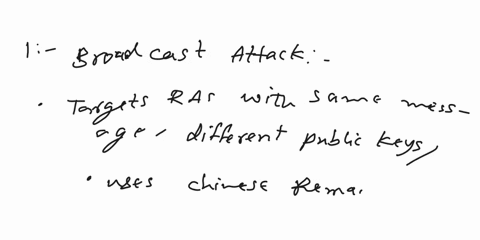 1:- Broadcast Attack:-
• Targets RAs with same mess-
age, different public keys,
• uses chinese Rema.